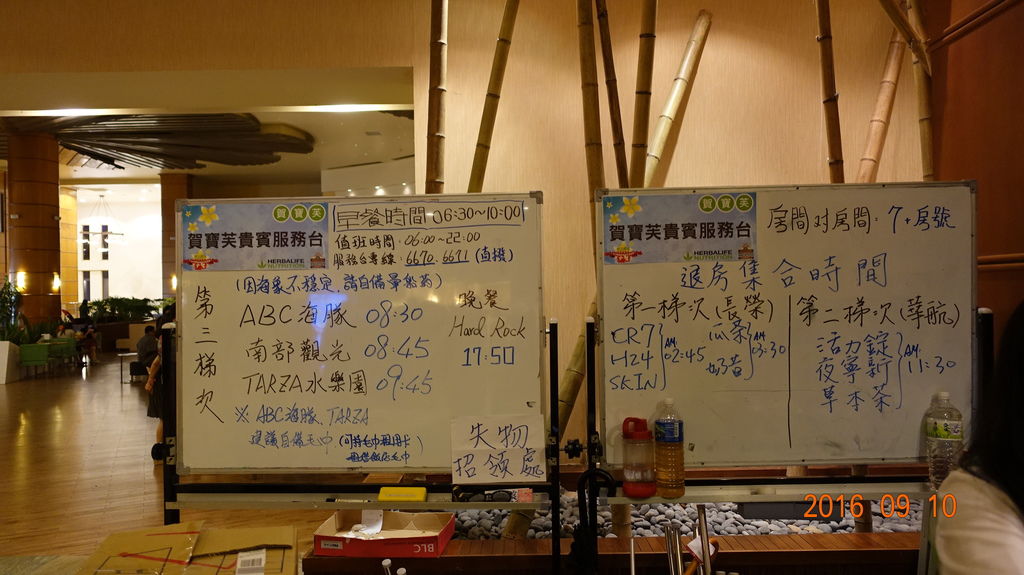 賀寶芙
賀寶芙貴賓服務台
HERBALIFE
NUTRITION
早餐時間 06:30~10:00
值班時間:06:00~22:00
服務台專線:6670.6671(直撥)
第三梯次
ABC海豚 08:30
南部觀光 08:45
TARZA水樂園 09:45
※ ABC海豚、TARZA
建議自備毛巾
晚餐
Hard Rock
17:50
失物
招領處
賀寶芙
賀寶芙貴賓服務台
HERBALIFE
NUTRITION
房間对房間: 7+房號
退房集合時間
第一梯次(長榮)
CR7
H24
SKIN
AM
02:45
AM
03:30
第二梯次(華航)
活力錠
夜寧新
草本茶
AM
11:30
BLC
2016 09 10